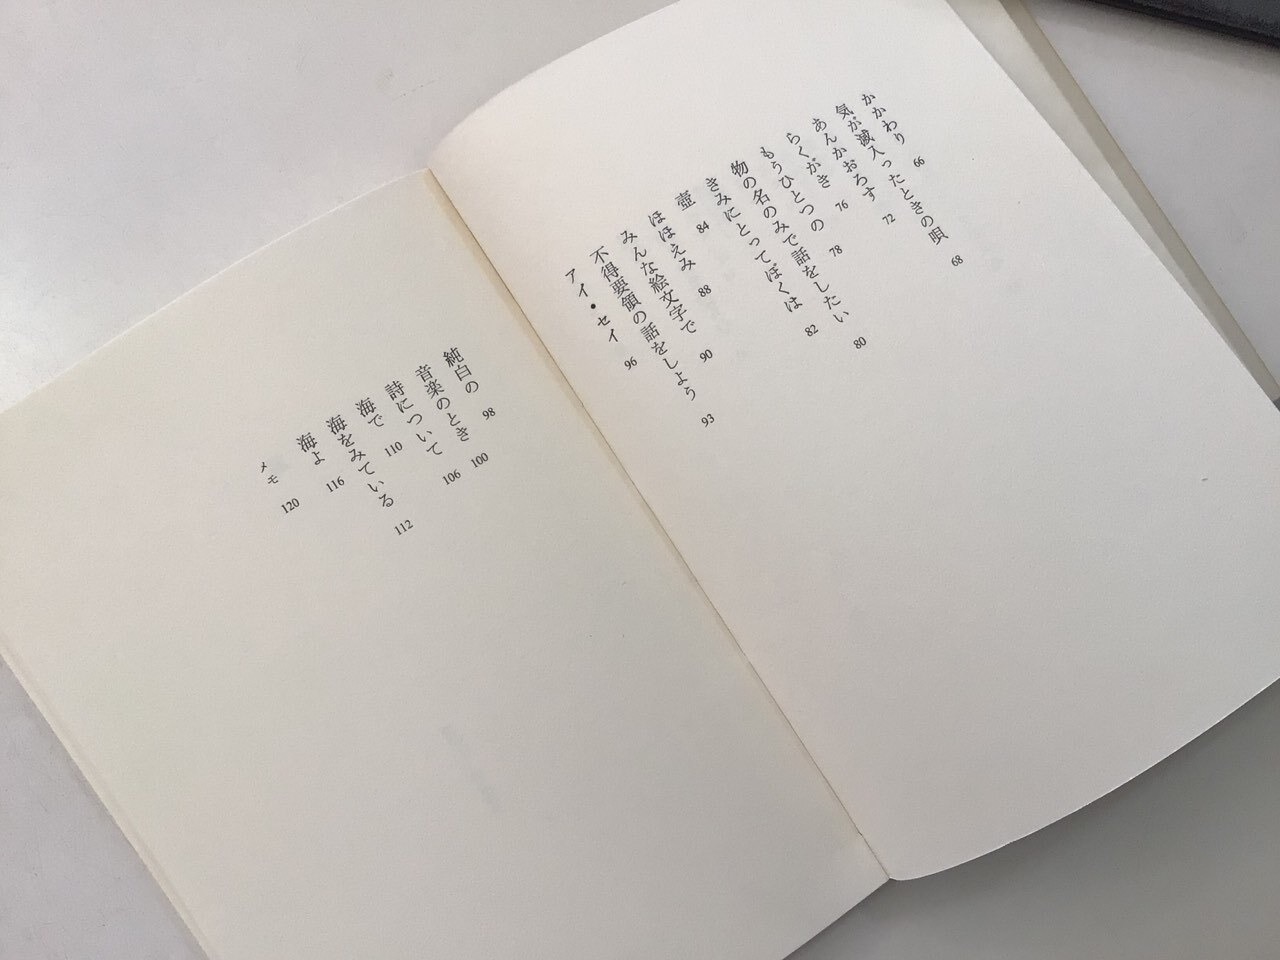 かかわり 66
気が滅入ったときの唄 68
あんかおろす 72
らくがき 76
もうひとつの 78
物の名のみで話をしたい 80
きみにとってぼくは 82
壺 84
ほほえみ 88
みんな絵文字で 90
不得要領の話をしよう 93
アイ・セイ 96
純白の 98
音楽のとき 100
詩について 106
海で 110
海をみている 112
海よ 116
メモ 120